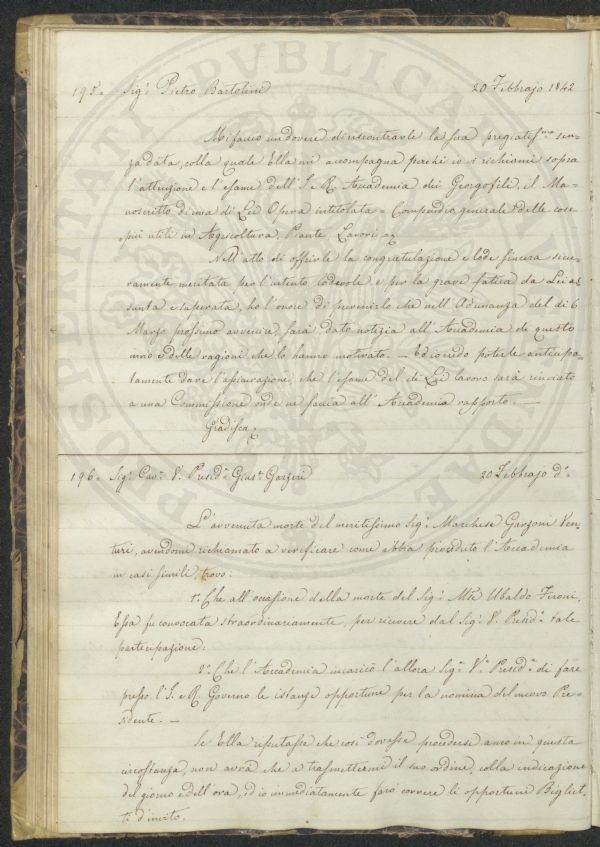 195. Sig.r Pietro Bartolini 20 Febbrajo 1842
Mi faccio un dovere di riscontrarle la sua pregiatis.ma sen-
za data, colla quale Ella mi accompagna perchè io vi richiami sopra
l'attenzione e l'esame dell'I. e R. Accademia dei Georgofili, il Ma-
noscritto di una di Lei Opera intitolata = Compendio generale delle cose
più utili in Agricoltura, Piante Lavori
Nell'atto di offrirle la congratulazione e lode sincera sicu-
ramente meritata per l'intento lodevole e per la grave fatica da Lei as
sunta e superata, ho l'onore di prevenirlo che nell'Adunanza del dì 6
Marzo prossimo avvenire, sarà dato notizia all'Accademia di questo
invio e delle ragioni che lo hanno motivato. — Ed io credo poterle anticipa-
tamente dare l'assicurazione, che l'esame del di Lei lavoro sarà rinviato
a una Commissione onde ne faccia all'Accademia rapporto. —
Gradisca
196. Sig.r Cav.e V. Presid.e Gius.e Gazzeri 20 Febbrajo d.o
L'avvenuta morte del meritissimo Sig.r Marchese Garzoni Ven-
turi, avendomi richiamato a verificare come abbia proceduto l'Accademia
in casi simili, trovo:
1.o Che all'occasione della morte del Sig.r Ubaldo Feroni,
Essa fu convocata straordinariamente, per ricevere dal Sig.r V. Presid.e tale
partecipazione.
2.o Che l'Accademia incaricò l'allora Sig.r V. Presid.e di fare
presso l'I. e R. Governo le istanze opportune per la nomina del nuovo Pre-
sidente. —
Se Ella reputasse che così dovesse procedersi anco in questa
circostanza, non avrà che a trasmettermi il suo ordine, colla indicazione
del giorno e dell'ora, ed io immediatamente farò correre li opportuni Bigliet-
ti d'invito.
PROSPERITATI REIPUBLICAE